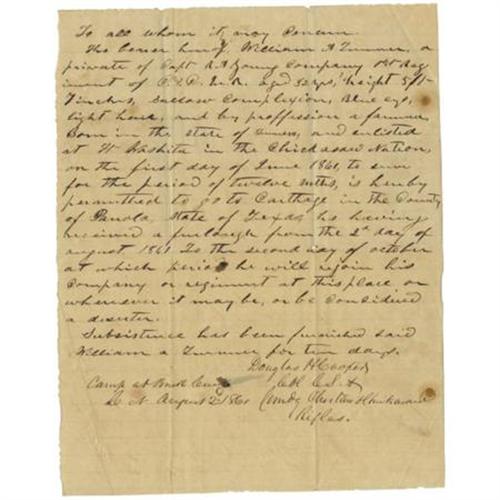 To all whom it may Concern
The bearer hereof William A Turner, a
private of Capt R A Young Company 1st Reg
iment of aged 32 yrs, height 5 ft
7 inches, sallow complexion, Blue eyes,
light hair, and by proffession a farmer
Born in the State of and enlisted
at Ft Washita in the Chickasaw Nation,
on the first day of June 1861, to serve
for the period of twelve mths, is hereby
permitted to go to Carthage in the County
of Panola State of Texas he having
received a furlough from the 2d day of
august 1861 To the second day of october
at which period he will rejoin his
Company or regiment at this place or
wherever it may be, or be considered
a deserter.
Subsistence has been furnished said
William a Turner for ten days.
Douglas H Cooper
Camp at Col C.S.A
C N August 2d 1861 Comdg Choctaw & Chickasaw
Rifles.